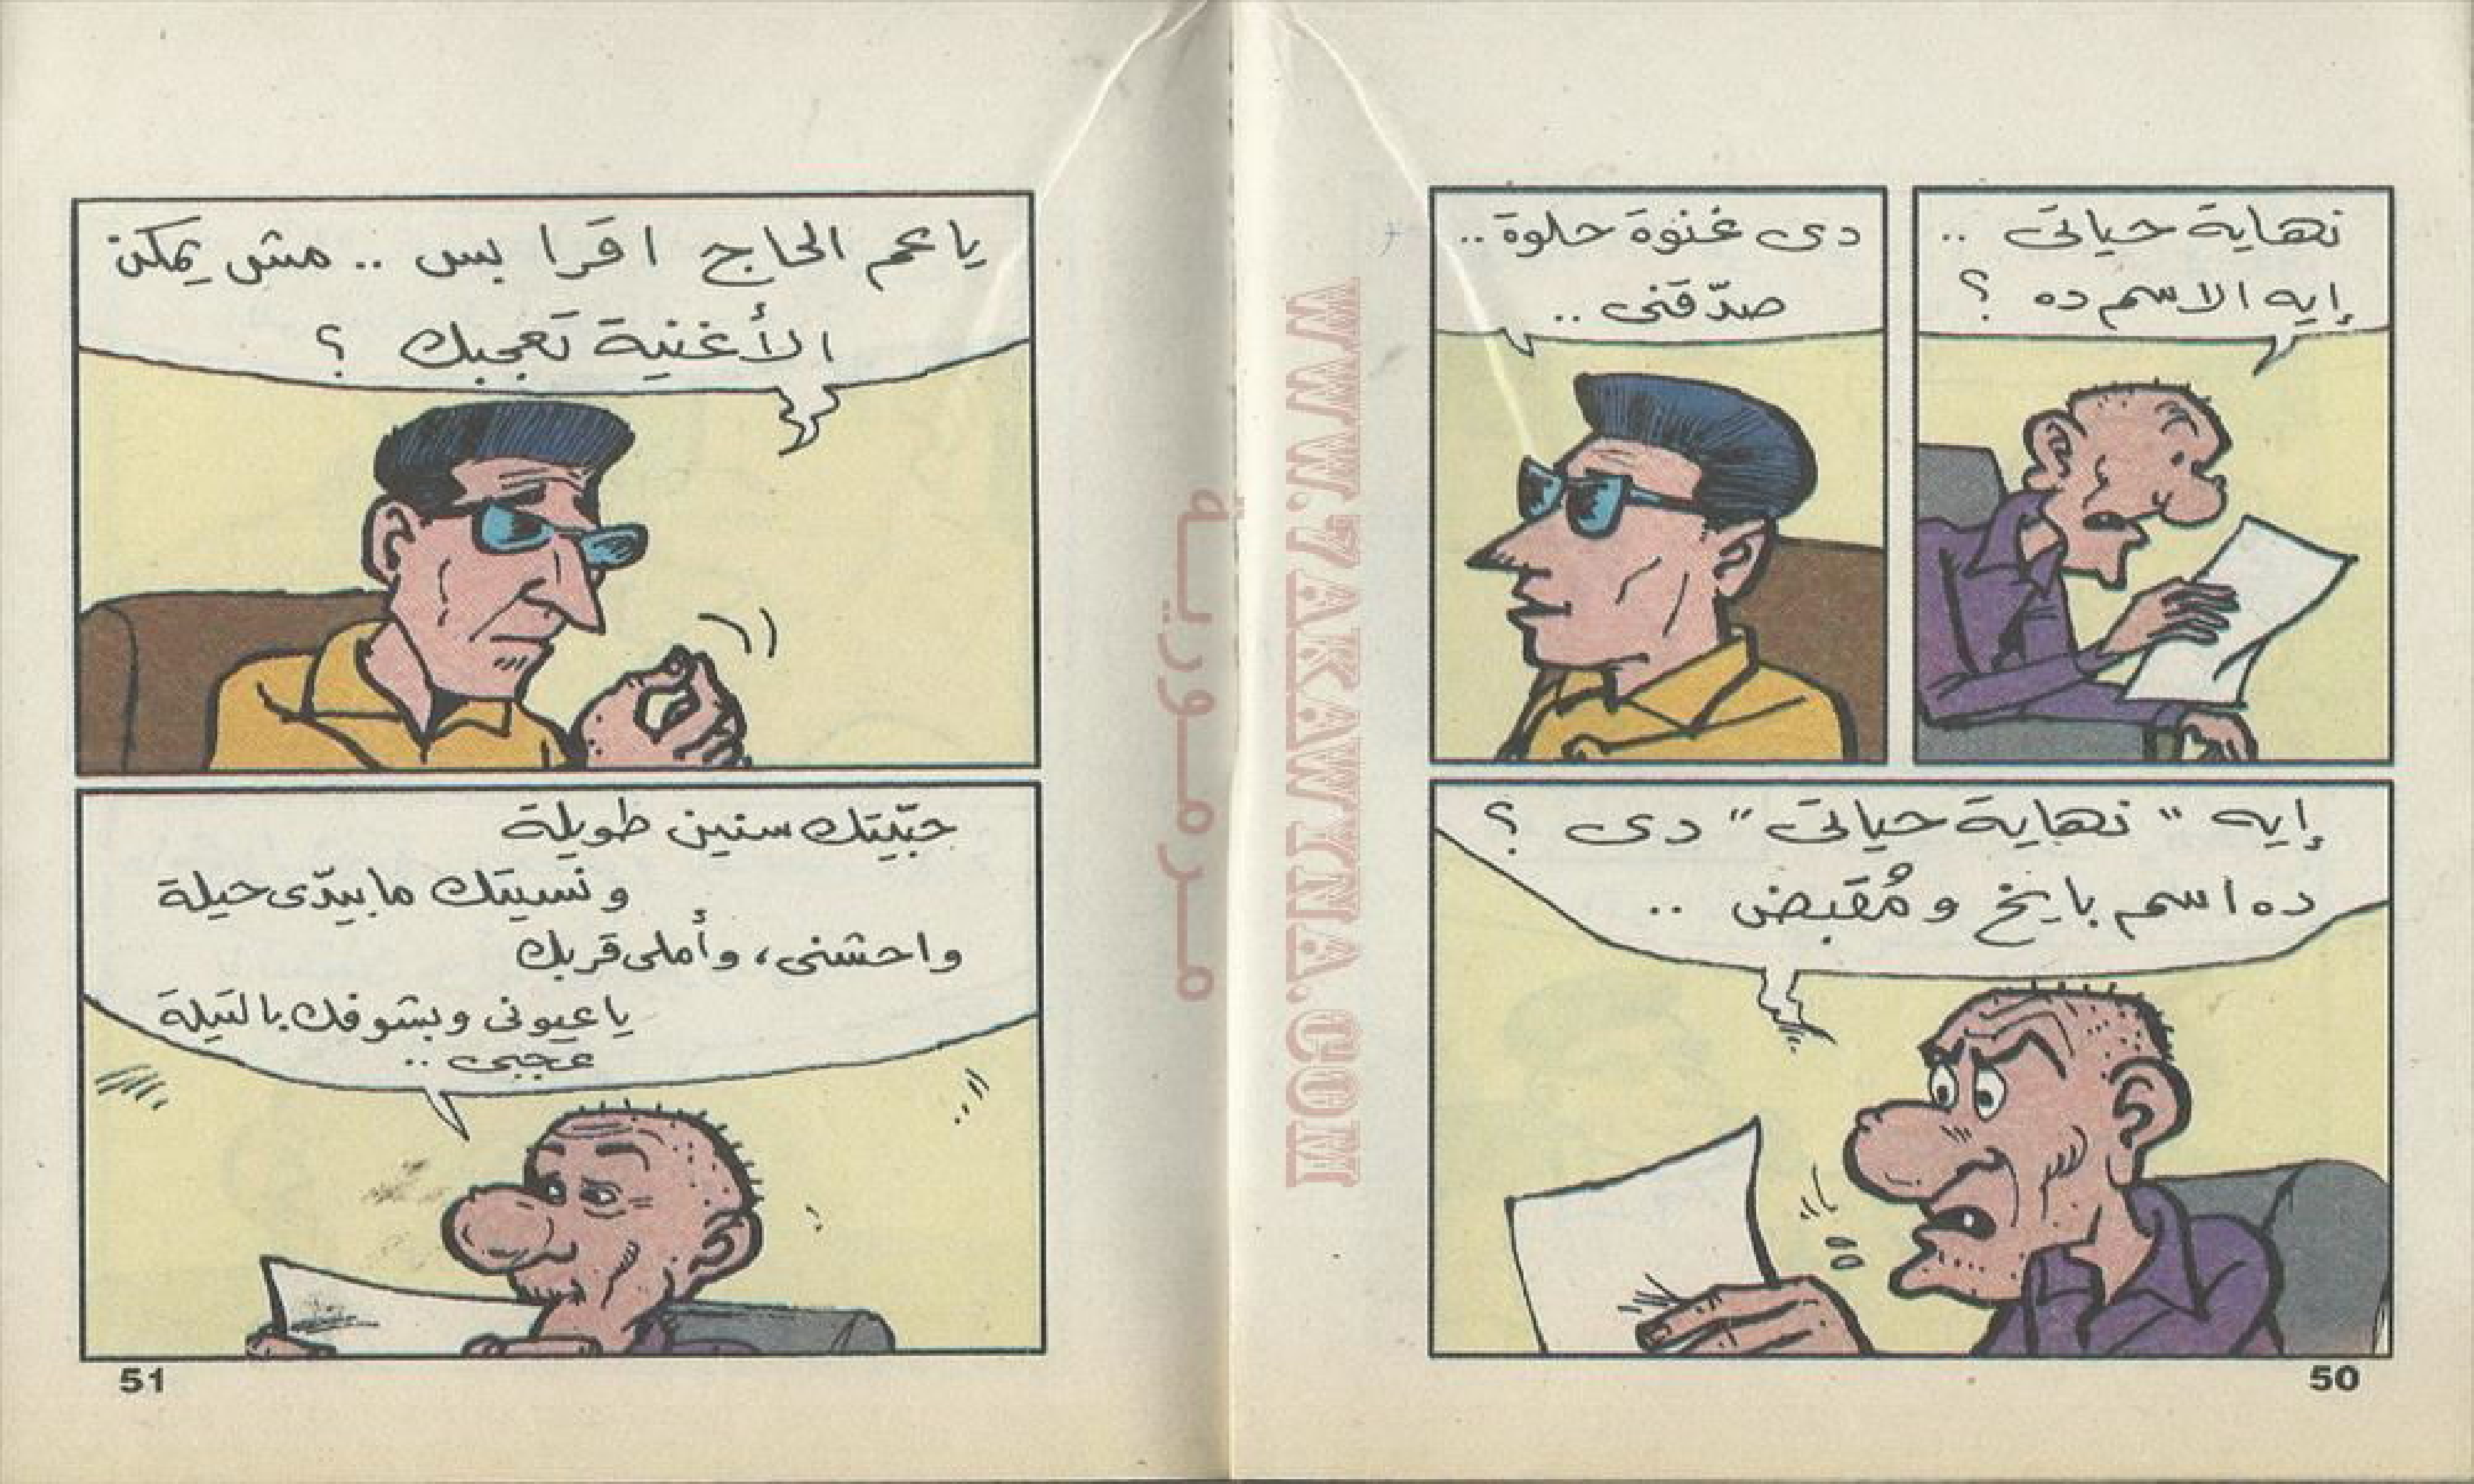 نهاية حياتى ..
إيه الاسم ده ؟
دى غنوة حلوة ..
صدّقنى ..
إيه "نهاية حياتى" دى ؟
ده اسم بايخ و مُقبض ..
50
يا عم الحاج اقرا بس .. مش يمكن
الأغنية تعجبك ؟
حبّيتك سنين طويلة
و نسيتك ما بيدّى حيلة
واحشنى، وأملى قربك
يا عيونى وبشوفك بالليلة
عجبى ..
51
WWW.7AKAWYNA.COM
مرمورية